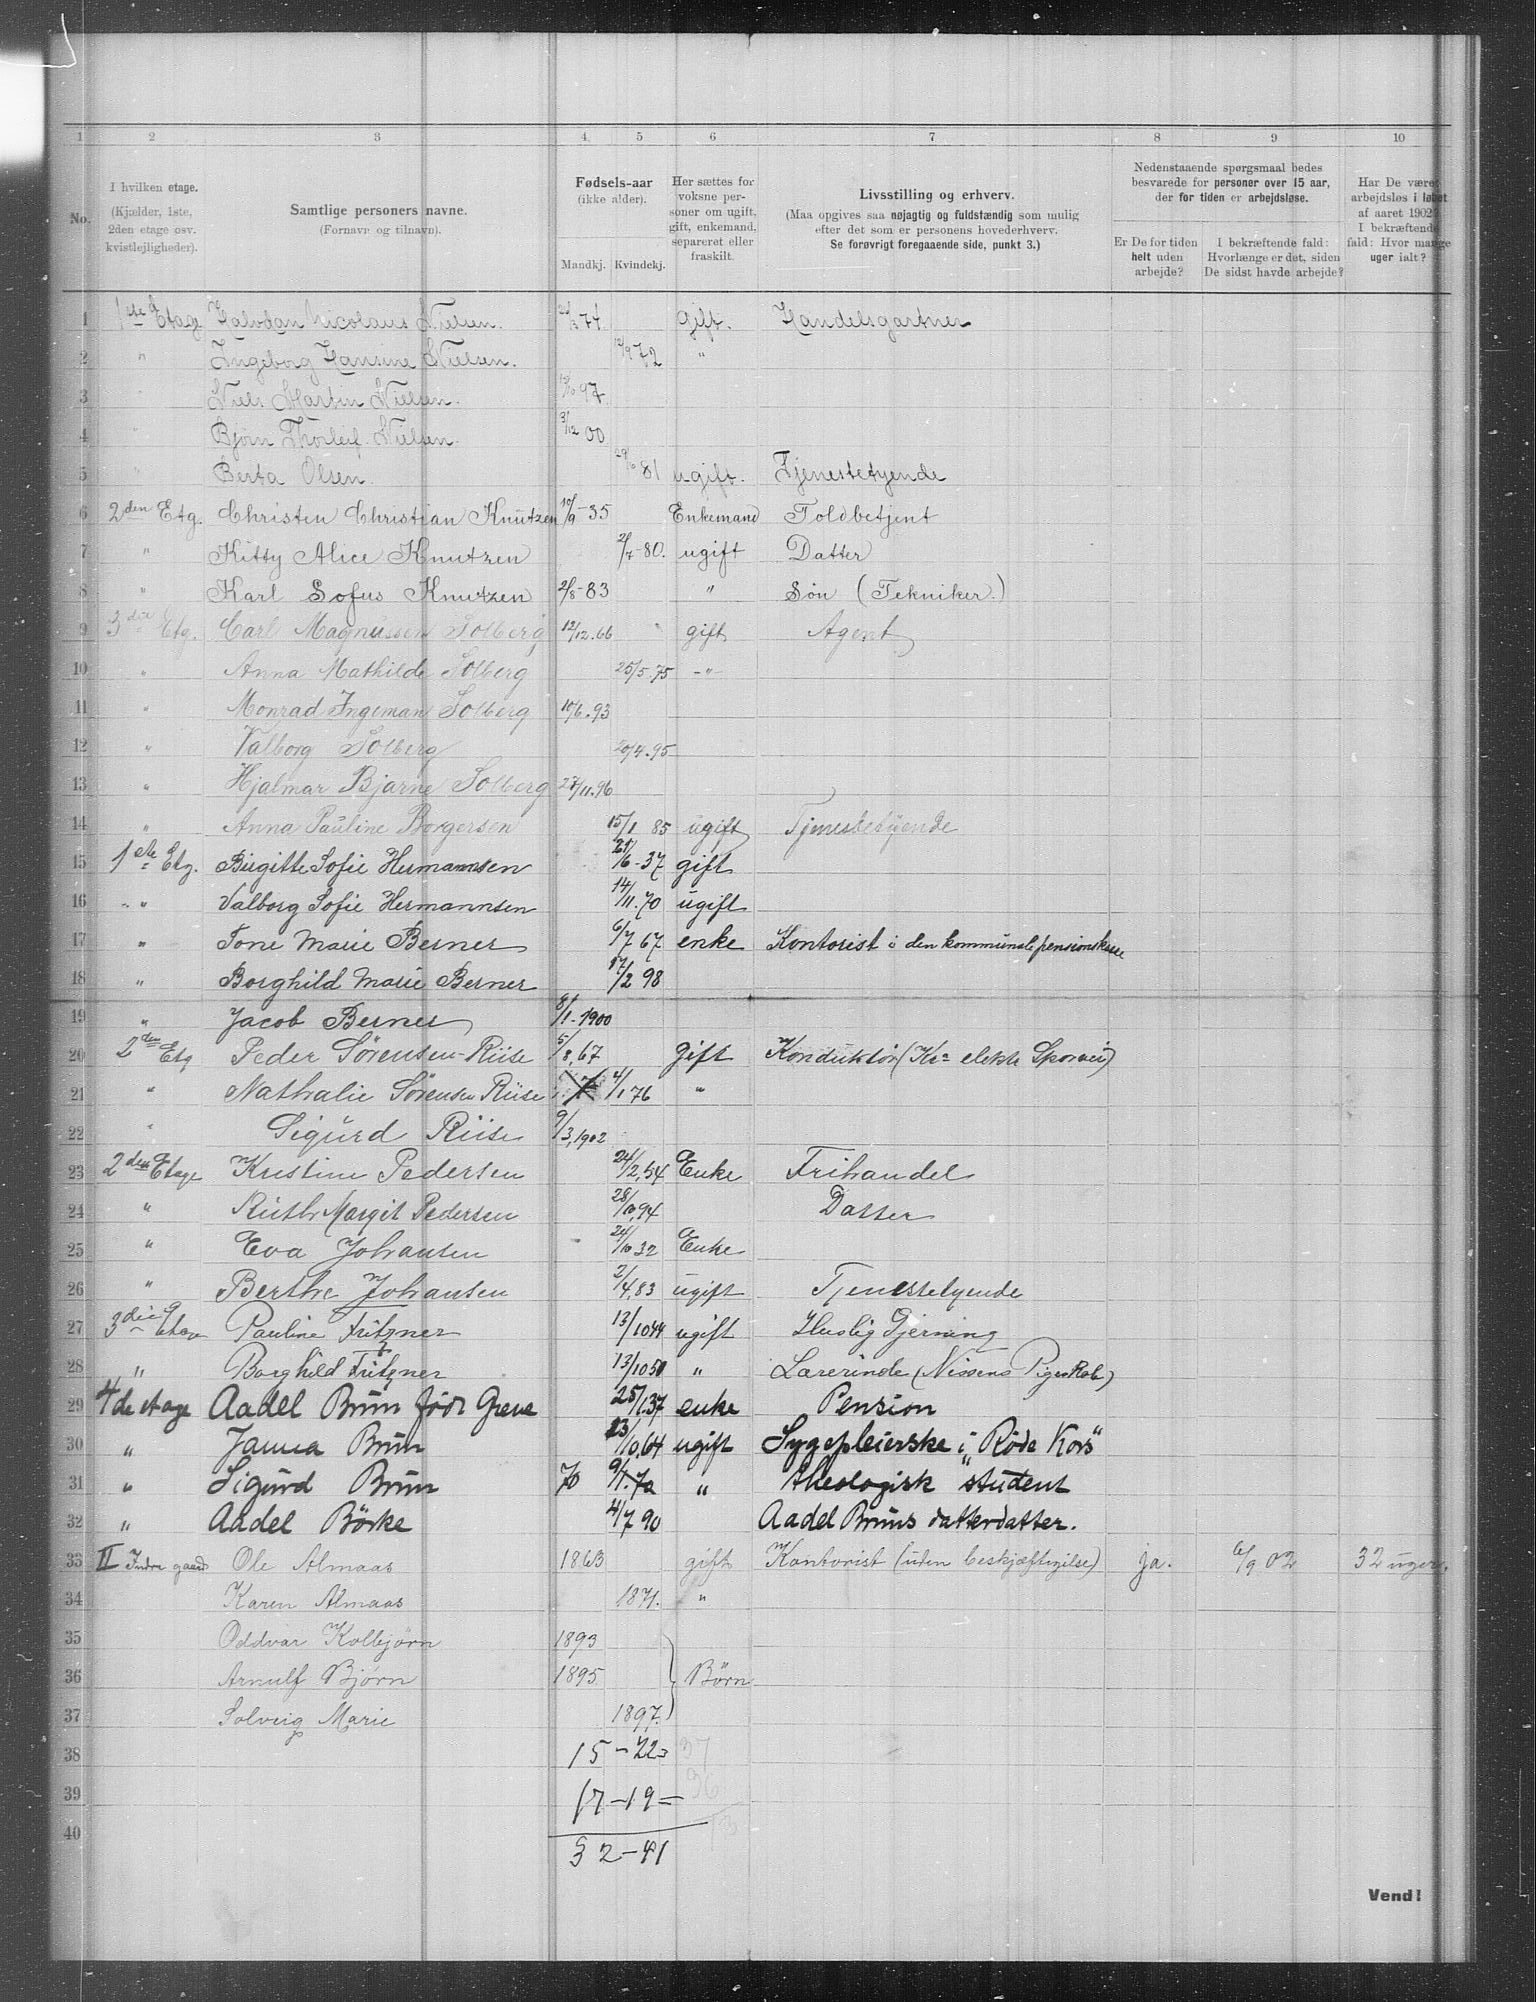 1 2 3 4 5 6 7 8 9 10
No.
I hvilken etage.
(Kjælder, 1ste,
2den etage osv.
kvistlejligheder).
Samtlige personers navne.
(Fornavn og tilnavn).
Fødsels-aar
(ikke alder).
Mandkj. Kvindekj.
Her sættes for
voksne per-
soner om ugift,
gift, enkemand,
separeret eller
fraskilt.
Livsstilling og erhverv.
(Maa opgives saa nøjagtig og fuldstændig som mulig
efter det som er personens hovederhverv.
Se forøvrigt foregaaende side, punkt 3.)
Nedenstaaende spørgsmaal bedes
besvarede for personer over 15 aar,
der for tiden er arbejdsløse.
Er De for tiden
helt uden
arbejde?
I bekræftende fald:
Hvorlænge er det, siden
De sidst havde arbejde?
Har De været
arbejdsløs i løbet
af aaret 1902?
I bekræftende
fald: Hvor mange
uger ialt?
1 1ste Etage Halvdan Nicolaus Nielsen. 74 gift. Handelsgartner
2 " Ingeborg Hansine Nielsen. 12/9 72 "
3 " Niels Martin Nielsen. 97
4 " Bjørn Thorleif Nielsen. 3/12 00
5 " Berta Olsen. 81 ugift. Tjenestetyende
6 2den Etg. Christen Christian Knutzen 10/9-35 Enkemand Toldbetjent
7 " Kitty Alice Knutzen 2/7-80. ugift Datter
8 " Karl Sofus Knutzen 2/8-83 " Søn (Tekniker.)
9 3die Etg. Carl Magnussen Solberg 12/12.66 gift Agent
10 " Anna Mathilde Solberg 25/5.75 -"-
11 " Monrad Ingeman Solberg 10/6.93
12 " Valborg Solberg 20/4.95
13 " Hjalmar Bjarne Solberg 27/11.96
14 " Anna Pauline Borgersen 15/1 85 ugift Tjenestetyende
15 1ste Etg. Birgitte Sofie Hermannsen 21/6-37 gift
16 " Valborg Sofie Hermannsen 14/11.70 ugift
17 " Tone Marie Berner 6/7 67 enke Kontorist i den kommunale pensionskasse
18 " Borghild Marie Berner 17/2 98
19 " Jacob Berner 8/1-1900
20 2den Etg Peder Sørensen-Riise 5/8,67 Gift Konduktør (Kra elektr Sporvei)
21 " Nathalie Sørensen Riise 4/1 76 "
22 " Sigurd Riise 9/3,1902
23 2den Etage Kristine Pedersen 24/2,54 Enke Frihandel
24 " Ruth Margit Pedersen 28/10,94 Datter
25 " Eva Johansen 24/10 32 Enke
26 " Berthe Johansen 2/4,83 ugift Tjenestetyende
27 3die Etage Pauline Fritzner 13/10 44 ugift Huslig Gjerning
28 " Borghild Fritzner 13/10 50 " Lærerinde (Nissens Pigeskole)
29 4de etage Aadel Brun født Greve 25/1.37 enke Pension
30 " Janna Brun 23/10,64 ugift Sygepleierske i "Røde Kors"
31 " Sigurd Brun 70 9/1.70 " theologisk student
32 " Aadel Börke 4/7 90 Aadel Bruns datterdatter.
33 II Indre gaard Ole Almaas 1863 gift Kontorist (uden beskjæftigelse) ja. 6/9 02 32 uger.
34 Karen Almaas 1871. "
35 Oddvar Kolbjørn 1893
36 Arnulf Bjørn 1895 Børn
37 Solveig Marie 1897.
38 15-22 37
39 17-19- 36
40 32-41
Vend!